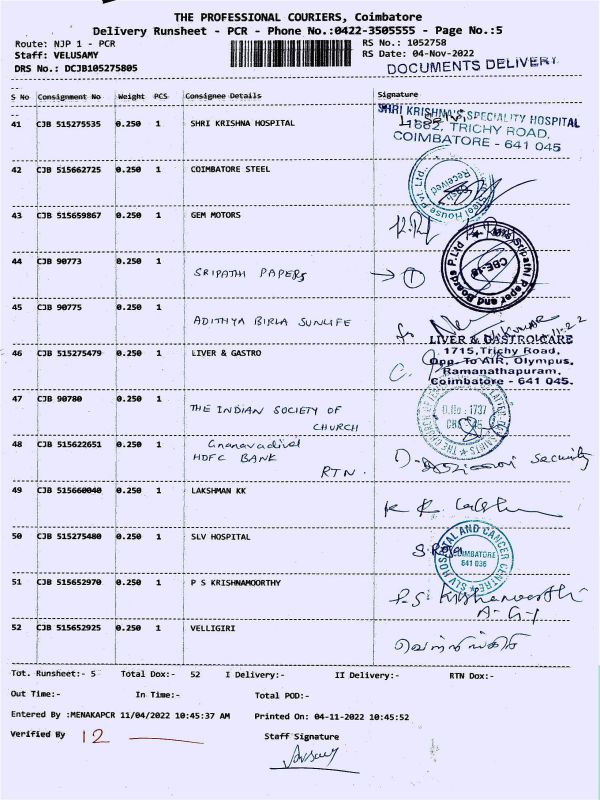 THE PROFESSIONAL COURIERS, Coimbatore
Delivery Runsheet - PCR - Phone No.:0422-3505555 - Page No.:5
Route: NJP 1 - PCR
RS No.: 1052758
Staff: VELUSAMY
RS Date: 04-Nov-2022
DRS No.: DCJB105275805
DOCUMENTS DELIVERY
S No Consignment No Weight PCS Consignee Details Signature
41 CJB 515275535 0.250 1 SHRI KRISHNA HOSPITAL
SHRI KRISHNA'S SPECIALITY HOSPITAL
1682, TRICHY ROAD,
COIMBATORE - 641 045
42 CJB 515662725 0.250 1 COIMBATORE STEEL
Steel House Pvt. Ltd.,
Received
43 CJB 515659867 0.250 1 GEM MOTORS
44 CJB 90773 0.250 1 SRIPATHI PAPERS → 1
Sripathi Paper and Boards P.Ltd
CBE-18
45 CJB 90775 0.250 1 ADITHYA BIRLA SUNLIFE
46 CJB 515275479 0.250 1 LIVER & GASTRO
LIVER & GASTROCARE
1715, Trichy Road,
Opp. To AIR, Olympus,
Ramanathapuram,
Coimbatore - 641 045.
47 CJB 90780 0.250 1 THE INDIAN SOCIETY OF
CHURCH
D.No: 1737
48 CJB 515622651 0.250 1 Gnanavadivel
HDFC BANK
RTN.
security
49 CJB 515660040 0.250 1 LAKSHMAN KK
50 CJB 515275480 0.250 1 SLV HOSPITAL
SLV HOSPITAL AND CANCER CENTRE
COIMBATORE
641 036
51 CJB 515652970 0.250 1 P S KRISHNAMOORTHY
P.S. Krishnamoorthi
52 CJB 515652925 0.250 1 VELLIGIRI
Tot. Runsheet:- 5 Total Dox:- 52 I Delivery:- II Delivery:- RTN Dox:-
Out Time:- In Time:- Total POD:-
Entered By :MENAKAPCR 11/04/2022 10:45:37 AM Printed On: 04-11-2022 10:45:52
Verified By 12 Staff Signature